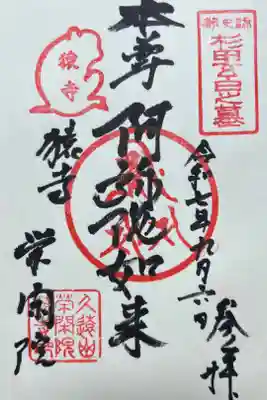 杉田玄白墓
令和七年九月六日 参拝
本尊 阿弥陀如来
猿寺
猿寺
栄閑院
久遠山
栄閑院